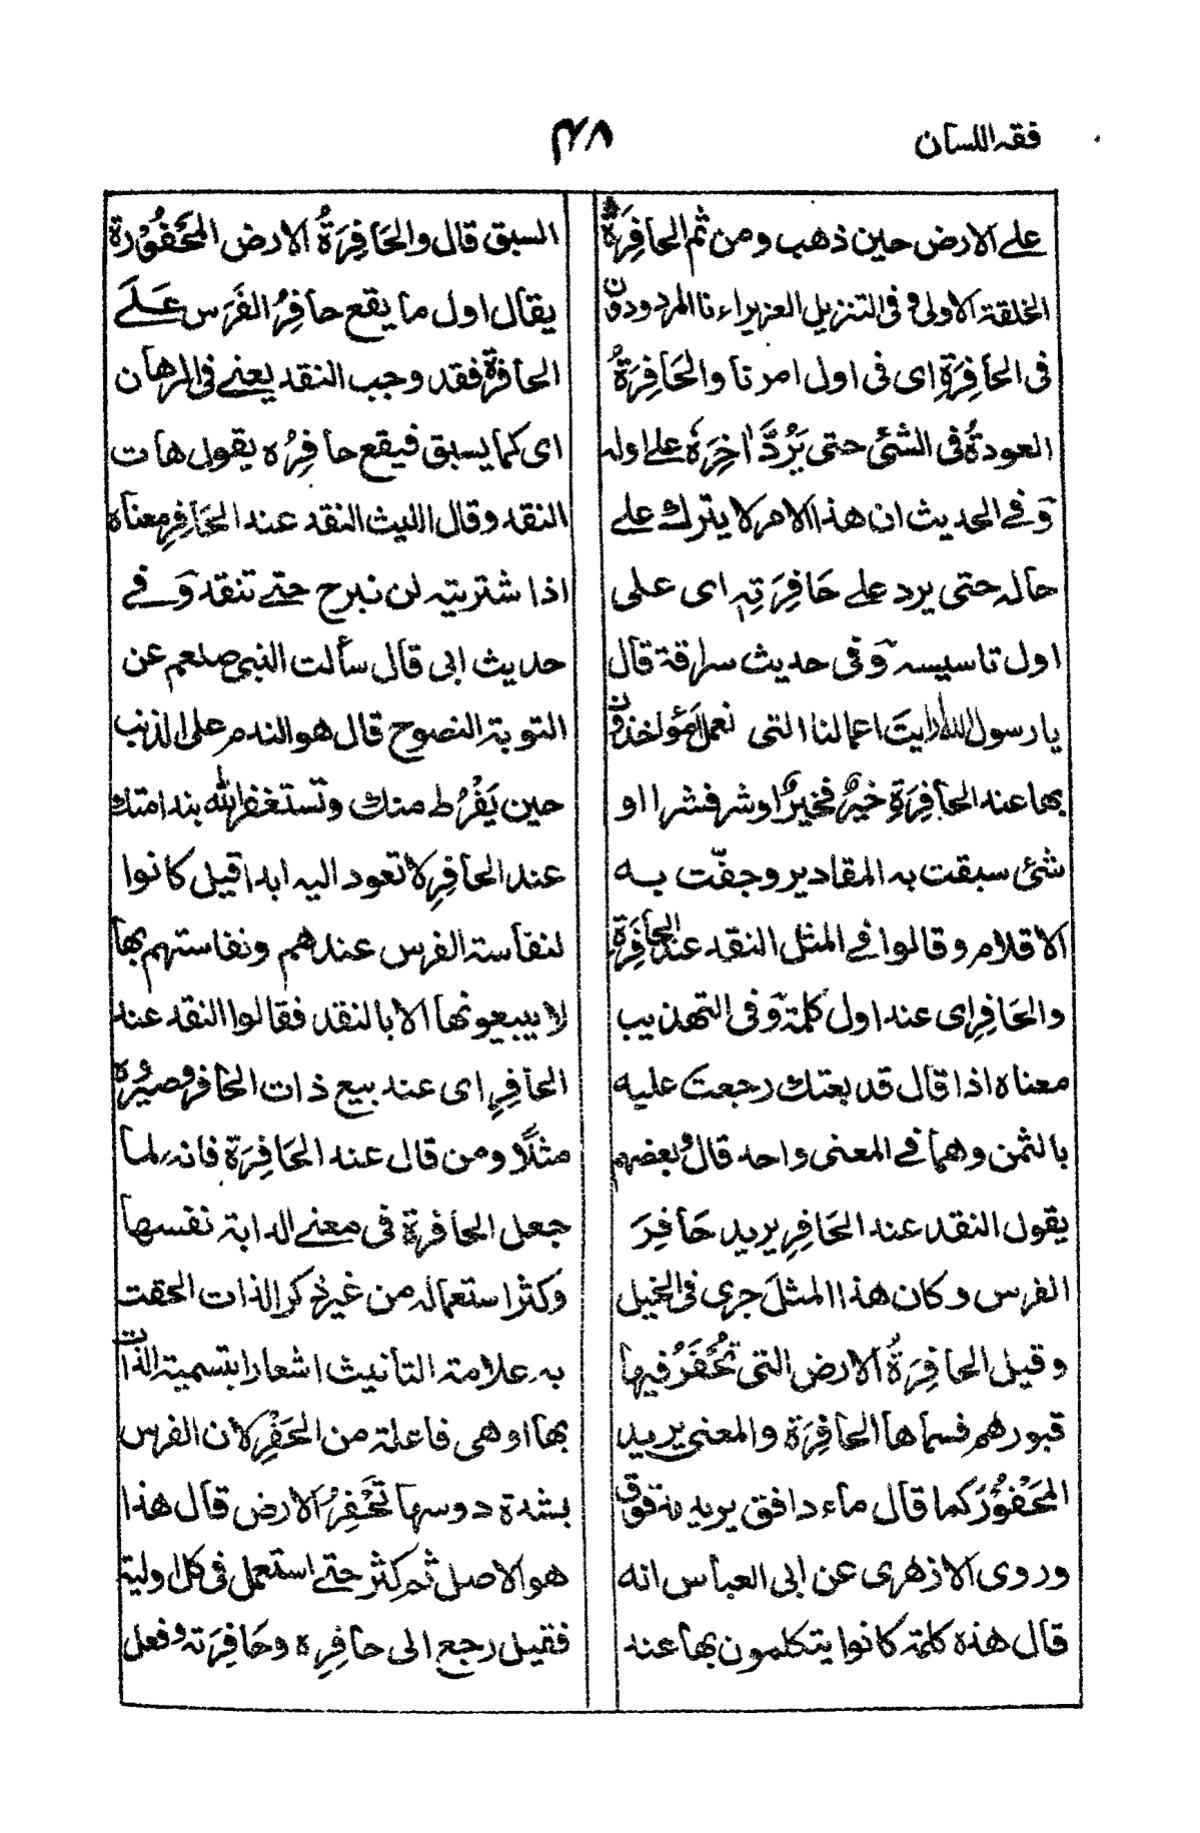 فقه اللسان
٣٨
على الارض حين ذهب ومن ثم الحافِرَةُ
الخلقة الاولى وفى التنزيل العزيز اءنا المردودون
فى الحافِرَةِ اى فى اول امرنا والحَافِرَةُ
العودةُ فى الشئ حتى يَرُدَّ اٰخِرَهٗ على اوله
وَفى الحديث ان هذا الامر لا يترك على
حاله حتى يرد على حَافِرَتِهٖ اى على
اول تاسيسه وَفى حديث سراقة قال
يا رسول الله ارايتَ اعمالنا التى نعمل اَمؤاخذون
بها عند الحافِرَةِ خيرٌ فخيرٌ او شر فشر او
شئ سبقت به المقادير وجفّت به
الاقلام وقالوا فى المثل النقد عند الحافِرَةِ
والحَافِرِ اى عند اول كلمة وَفى التهذيب
معناه اذا قال قد بعتك رجعتَ عليه
بالثمن وهما فى المعنى واحد قال وبعضهم
يقول النقد عند الحَافِرِ يريد حَافِرَ
الفرس وكان هذا المثلَ جرى فى الخيل
وقيل الحافِرَةُ الارض التى تُحْفَرُ فيها
قبورهم فسماها الحافِرَة والمعنى يريد
المَحْفُوْرَ كما قال ماء دافق يريد مدفوق
وروى الازهرى عن ابى العباس انه
قال هذه كلمة كانوا يتكلمون بها عند
السبق قال والحَافِرَةُ الارض المَحْفُوْرة
يقال اول ما يقع حافِرُ الفَرَس عَلَى
الحافرة فقد وجب النقد يعنى فى الرهان
اى كما يسبق فيقع حافِرُه يقول هات
النقد وقال الليث النقد عند الحَافِرِ معناه
اذا اشتريته لن نبرح حتى تنقد وَفى
حديث ابى قال سألت النبى صلعم عن
التوبة النصوح قال هو الندم على الذنب
حين يَفْرُط منك وتستغفر الله بندامتك
عند الحافِرِ لا تعود اليه ابدا قيل كانوا
لنفاسة الفرس عندهم ونفاستهم بها
لا يبيعونها الا بالنقد فقالوا النقد عند
الحافِرِ اى عند بيع ذات الحافر وصيروه
مثلًا ومن قال عند الحَافِرَة فانه لما
جعل الحافرة فى معنى الدابة نفسها
وكثر استعماله من غير ذكر الذات الحقت
به علامة التأنيث اشعارا بتسمية الذات
بها او هى فاعلة من الحَفْرِ لان الفرس
بشدة دوسها تَحْفِرُ الارض قال هذا
هو الاصل ثم كثر حتى استعمل فى كل اولية
فقيل رجع الى حافِرِه وحَافِرَته وفعل